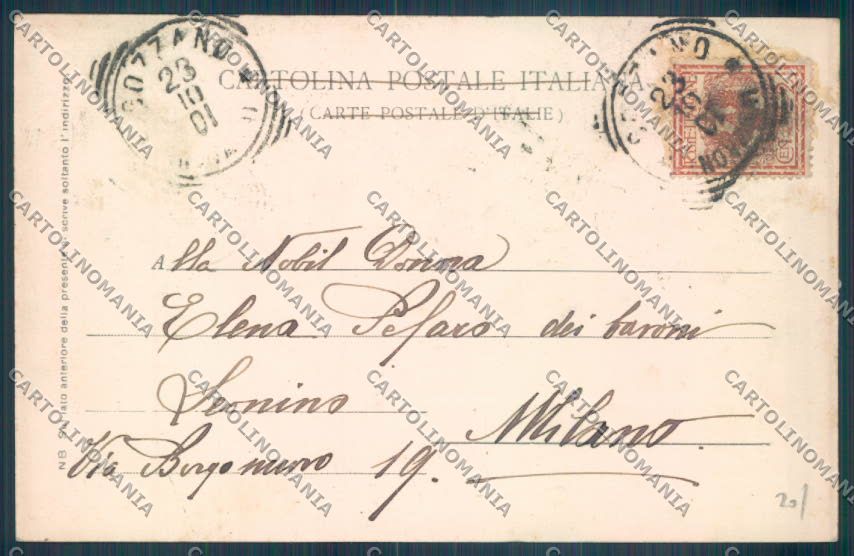 GOZZANO
23
10
01
NOVARA
CARTOLINA POSTALE ITALIANA
(CARTE POSTALE D'ITALIE)
GOZZANO
23
10
01
NOVARA
Alla Nobil Donna
Elena Pesaro dei baroni
Sonnino
Milano
Via Borgonuovo 19.
NB Sul lato anteriore della presente si scrive soltanto l'indirizzo
20/
CARTOLINOMANIA